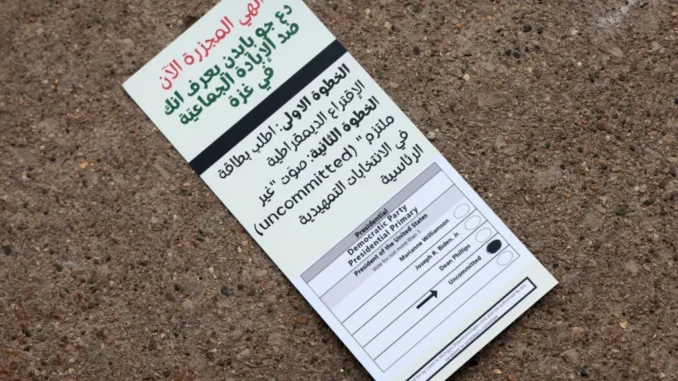 المجزرة الآن
دع جو بايدن يعرف انك
ضد الإبادة الجماعية
في غزة
الخطوة الاولى: اطلب بطاقة
الإقتراع الديمقراطية
الخطوة الثانية: صوّت "غير
ملتزم" (uncommitted)
في الانتخابات التمهيدية
الرئاسية
Presidential
Democratic Party
Presidential Primary
President of the United States
Vote for not more than 1
Marianne Williamson
Joseph R. Biden, Jr.
Dean Phillips
Uncommitted